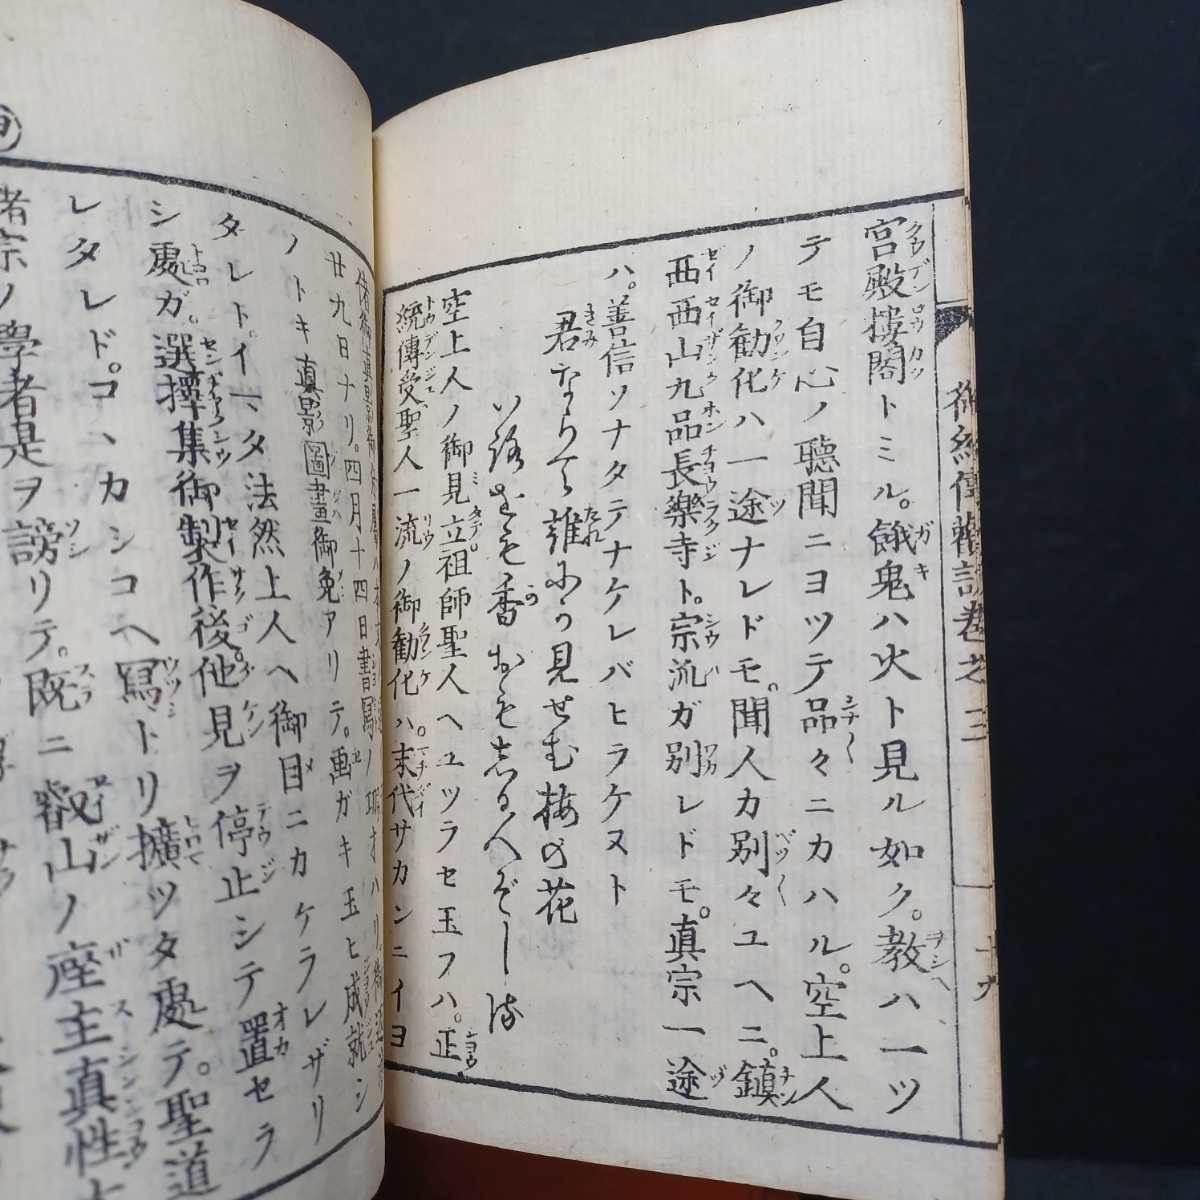 宮殿樓閣トミル。餓鬼ハ火ト見ル如ク。教ハ一ツ
テモ自心ノ聽聞ニヨツテ品々ニカハル。空上人
ノ御勧化ハ一途ナレドモ。聞人カ別々ユヘニ。鎮
西西山九品長樂寺ト。宗流ガ別レドモ。真宗一途
ハ。善信ソナタテナケレバヒラケヌト
君ならで誰にか見せむ梅の花
いろをも香をもしる人ぞしる
空上人ノ御見立祖師聖人ヘユツラセ玉フハ。正
統傳受聖人一流ノ御勧化ハ。末代サカンニイヨ
廿九日ナリ。四月十四日書寫ノ
ノトキ真影圖畫御免アリテ。画ガキ玉ヒ成就シ
タレト。イマタ法然上人ヘ御目ニカケラレザリ
シ處ガ。選擇集御製作後他見ヲ停止シテ置セラ
レタレド。コヽカシコヘ寫トリ擴ツタ處テ。聖道
諸宗ノ學者是ヲ謗リテ。既ニ叡山ノ座主真性